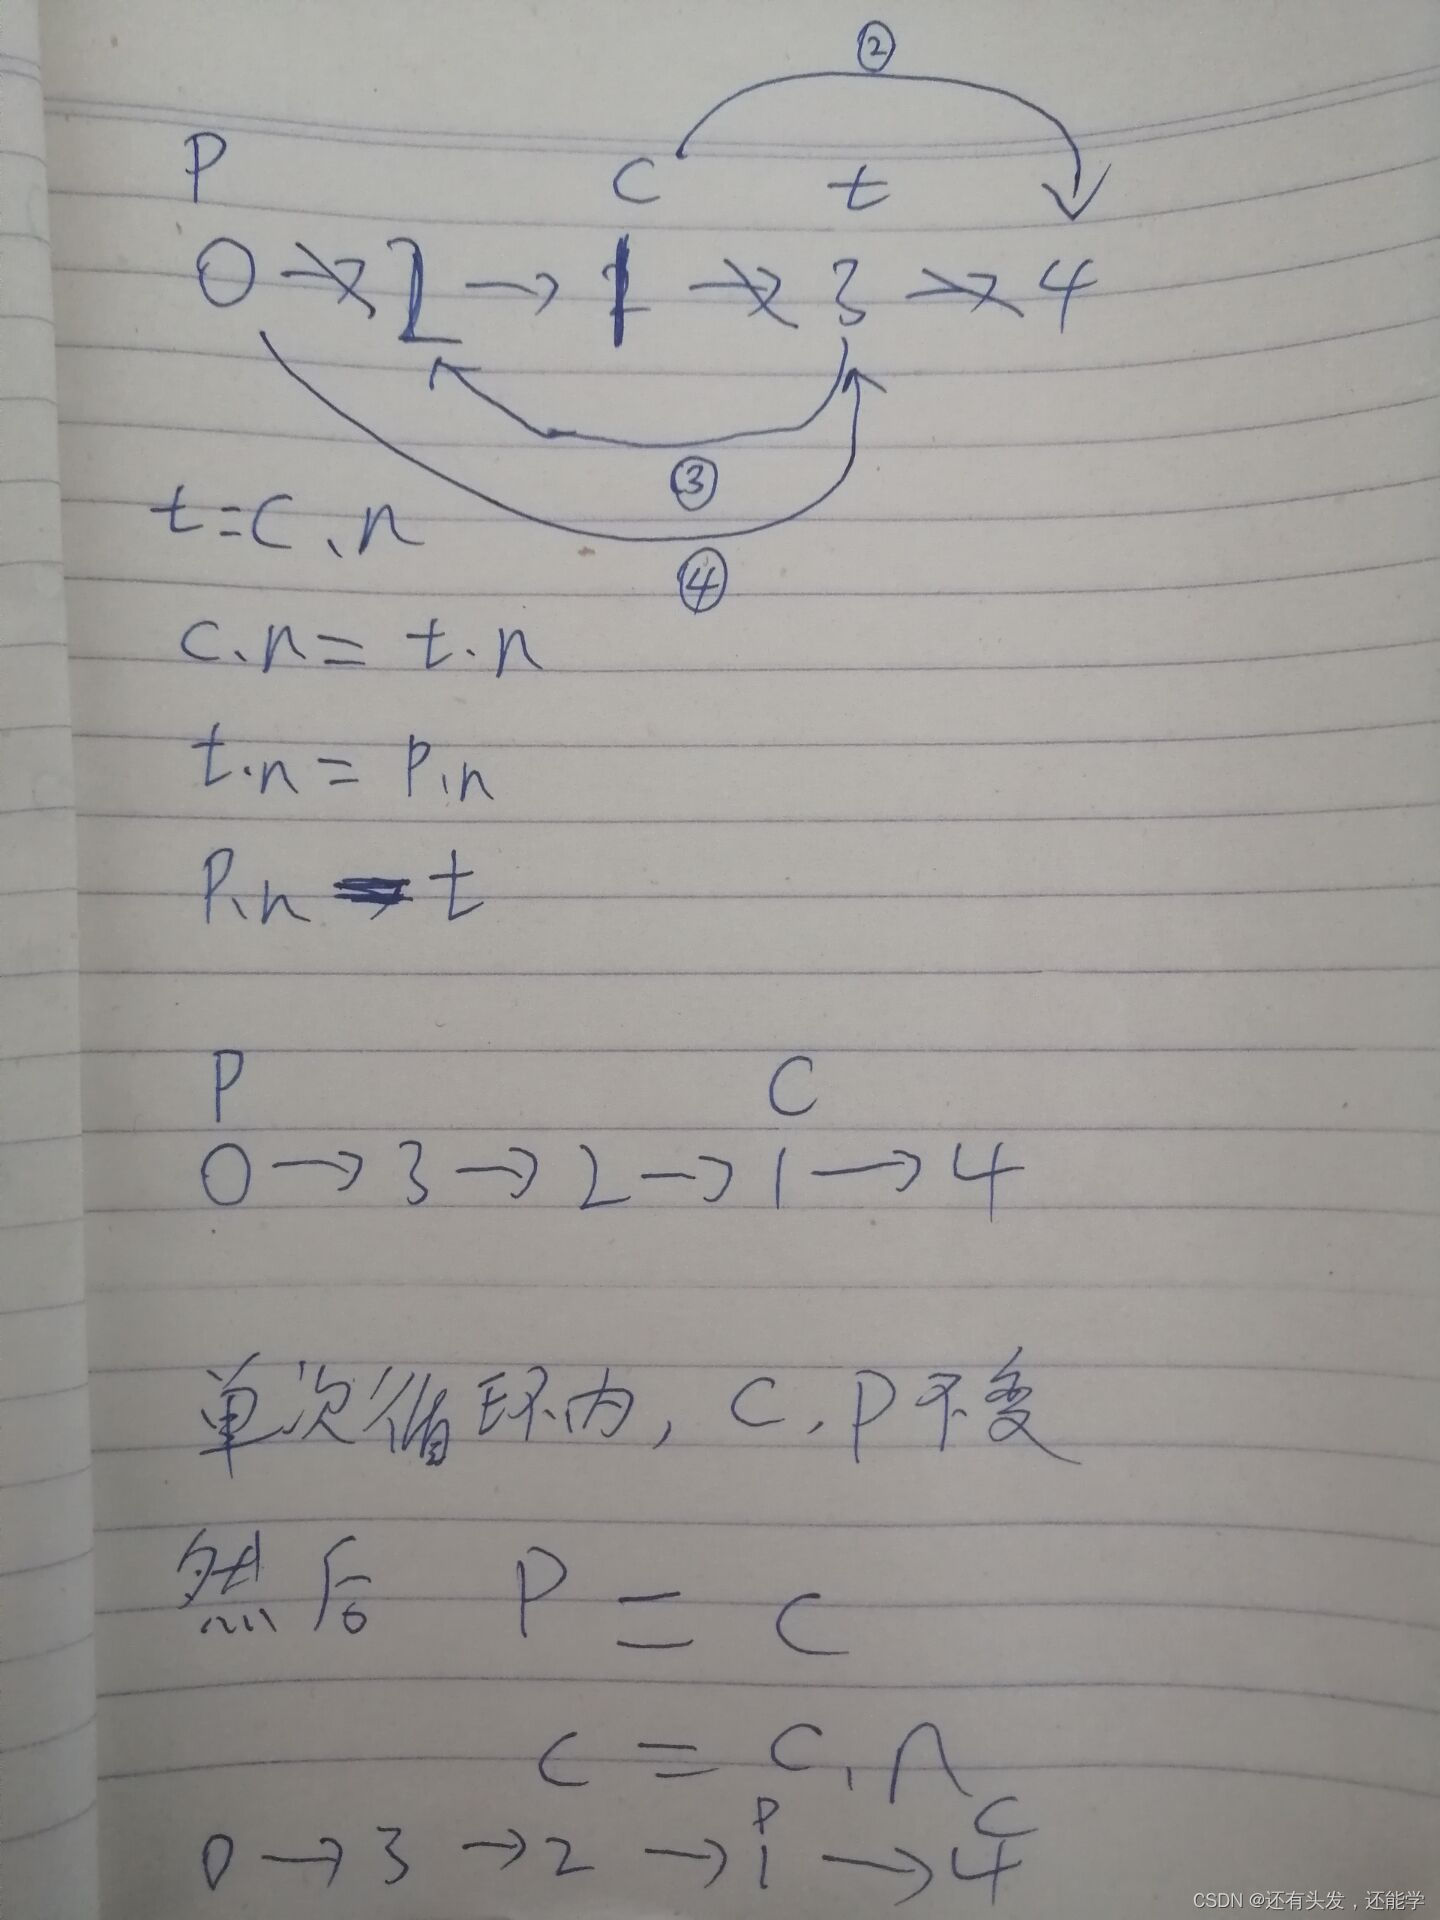 ②
P C t
0 → 2 → 1 → 3 → 4
③
t=C.n
④
C.n = t.n
t.n = P.n
P.n = t
P C
0 → 3 → 2 → 1 → 4
单次循环内, C, P不变
然后 P = C
C = C.n
P C
0 → 3 → 2 → 1 → 4
CSDN @还有头发，还能学